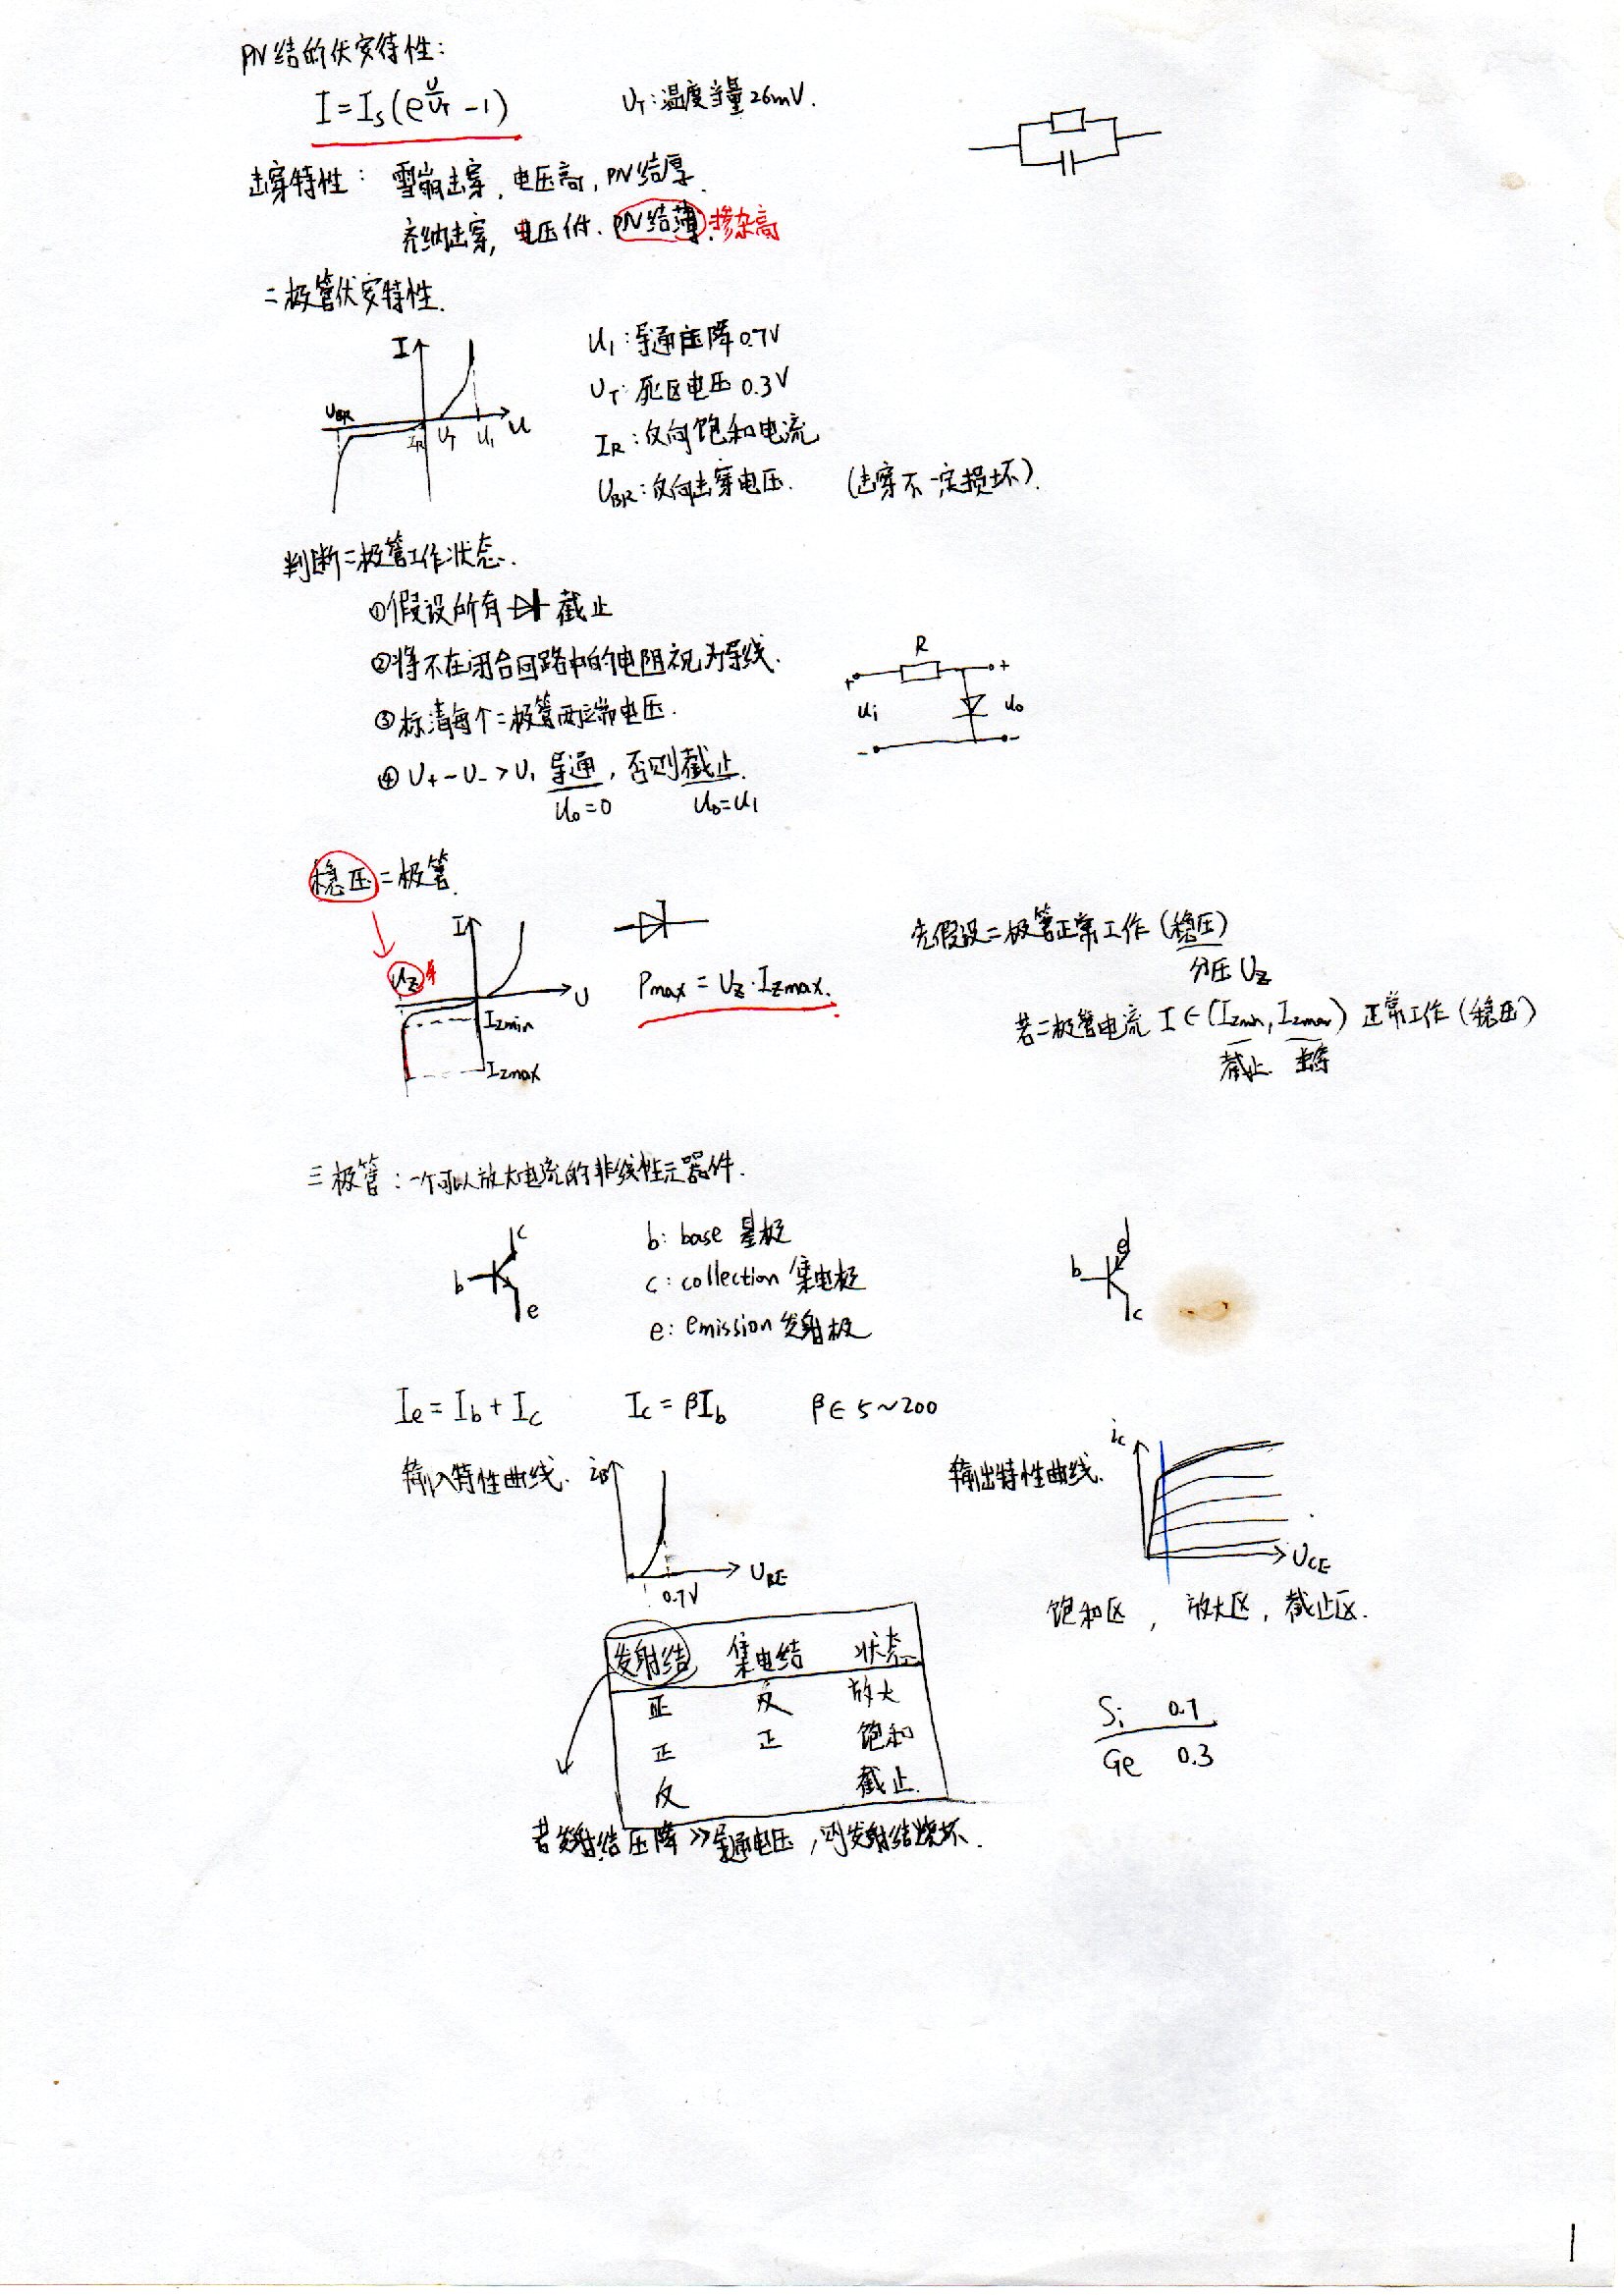 PN结的伏安特性:
I=Is(e^(U/UT) -1)   UT:温度当量26mV.
击穿特性: 雪崩击穿,电压高,PN结厚.
齐纳击穿,电压低、PN结薄.掺杂高
二极管伏安特性.
I
UBR IR UT U1 U
U1:导通压降0.7V
UT:死区电压0.3V
IR:反向饱和电流
UBR:反向击穿电压. (击穿不一定损坏).
判断二极管工作状态.
①假设所有 截止
②将不在闭合回路中的电阻视为导线.
③标清每个二极管两端电压.
④U+-U->U1 导通,否则截止.
uo=0 uo=u1
R
+ +
ui uo
- -
稳压二极管.
I
Uz
U
Izmin
Izmax
Pmax=Uz·Izmax.
先假设二极管正常工作(稳压)
分压Uz
若二极管电流I∈(Izmin,Izmax)正常工作(稳压)
截止 击穿
三极管:一个可以放大电流的非线性元器件.
c
b
e
b: base 基极
c: collection 集电极
e: emission 发射极
e
b
c
Ie=Ib+Ic   Ic=βIb   β∈5~200
输入特性曲线. iB
UBE
0.7V
输出特性曲线. ic
UCE
饱和区, 放大区, 截止区.
发射结 集电结 状态
正 反 放大
正 正 饱和
反 截止.
Si 0.7
Ge 0.3
若发射结压降>>导通电压,则发射结烧坏.
1